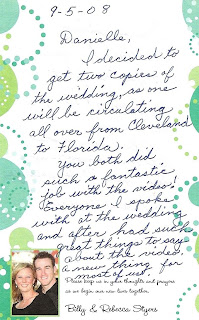 9-5-08
Danielle,
I decided to
get two copies of
the wedding, as one
will be circulating
all over from Cleveland
to Florida.
You both did
such a fantastic
job with the video!
Everyone I spoke
with at the wedding
and after had such
great things to say
about the video,
a new thing for
most of us.
Please keep us in your thoughts and prayers
as we begin our new lives together.
Billy & Rebecca Styers